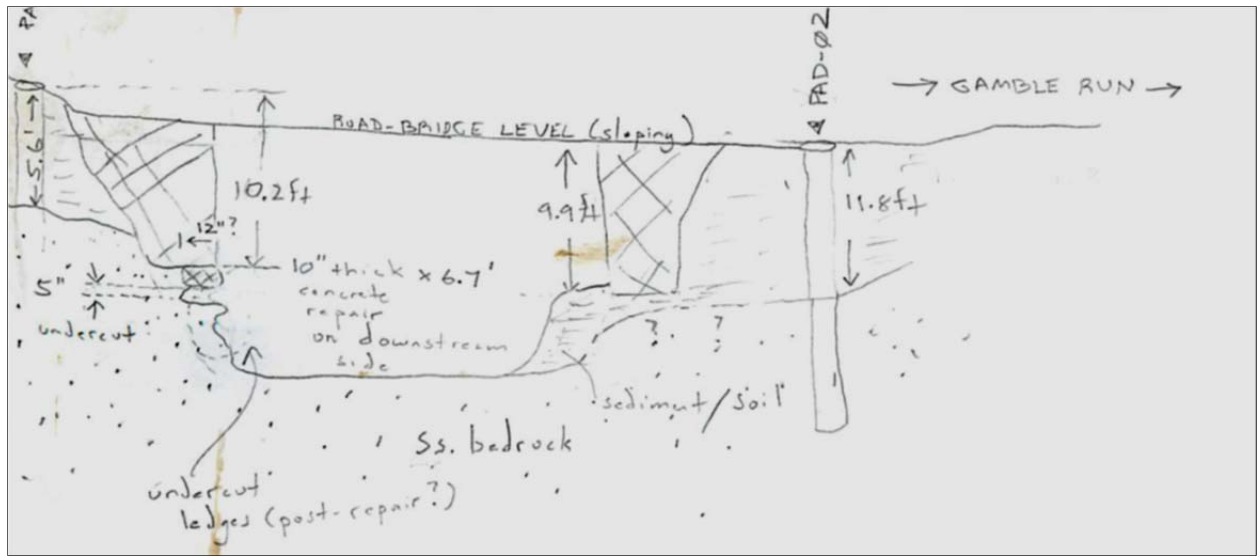 PA
PAD-02
→ GAMBLE RUN →
ROAD-BRIDGE LEVEL (sloping)
5.6'
10.2ft
9.9ft
11.8ft
12"?
10" thick x 6.7'
concrete
repair
on downstream
side
5"
undercut
? ?
sediment/soil
Ss. bedrock
undercut
ledges (post-repair?)